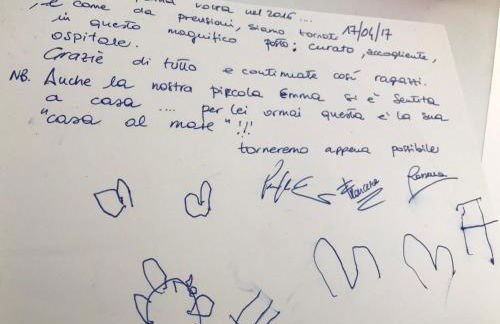 volta nel 2016 ...
, e come da previsioni, siamo tornati 17/04/17
in questo magnifico posto; curato, accogliente,
ospitale.
Grazie di tutto e continuate così ragazzi.
NB. Anche la nostra piccola Emma si è sentita
a casa .... per lei ormai questa è la sua
"casa al mare" !!!
torneremo appena possibile